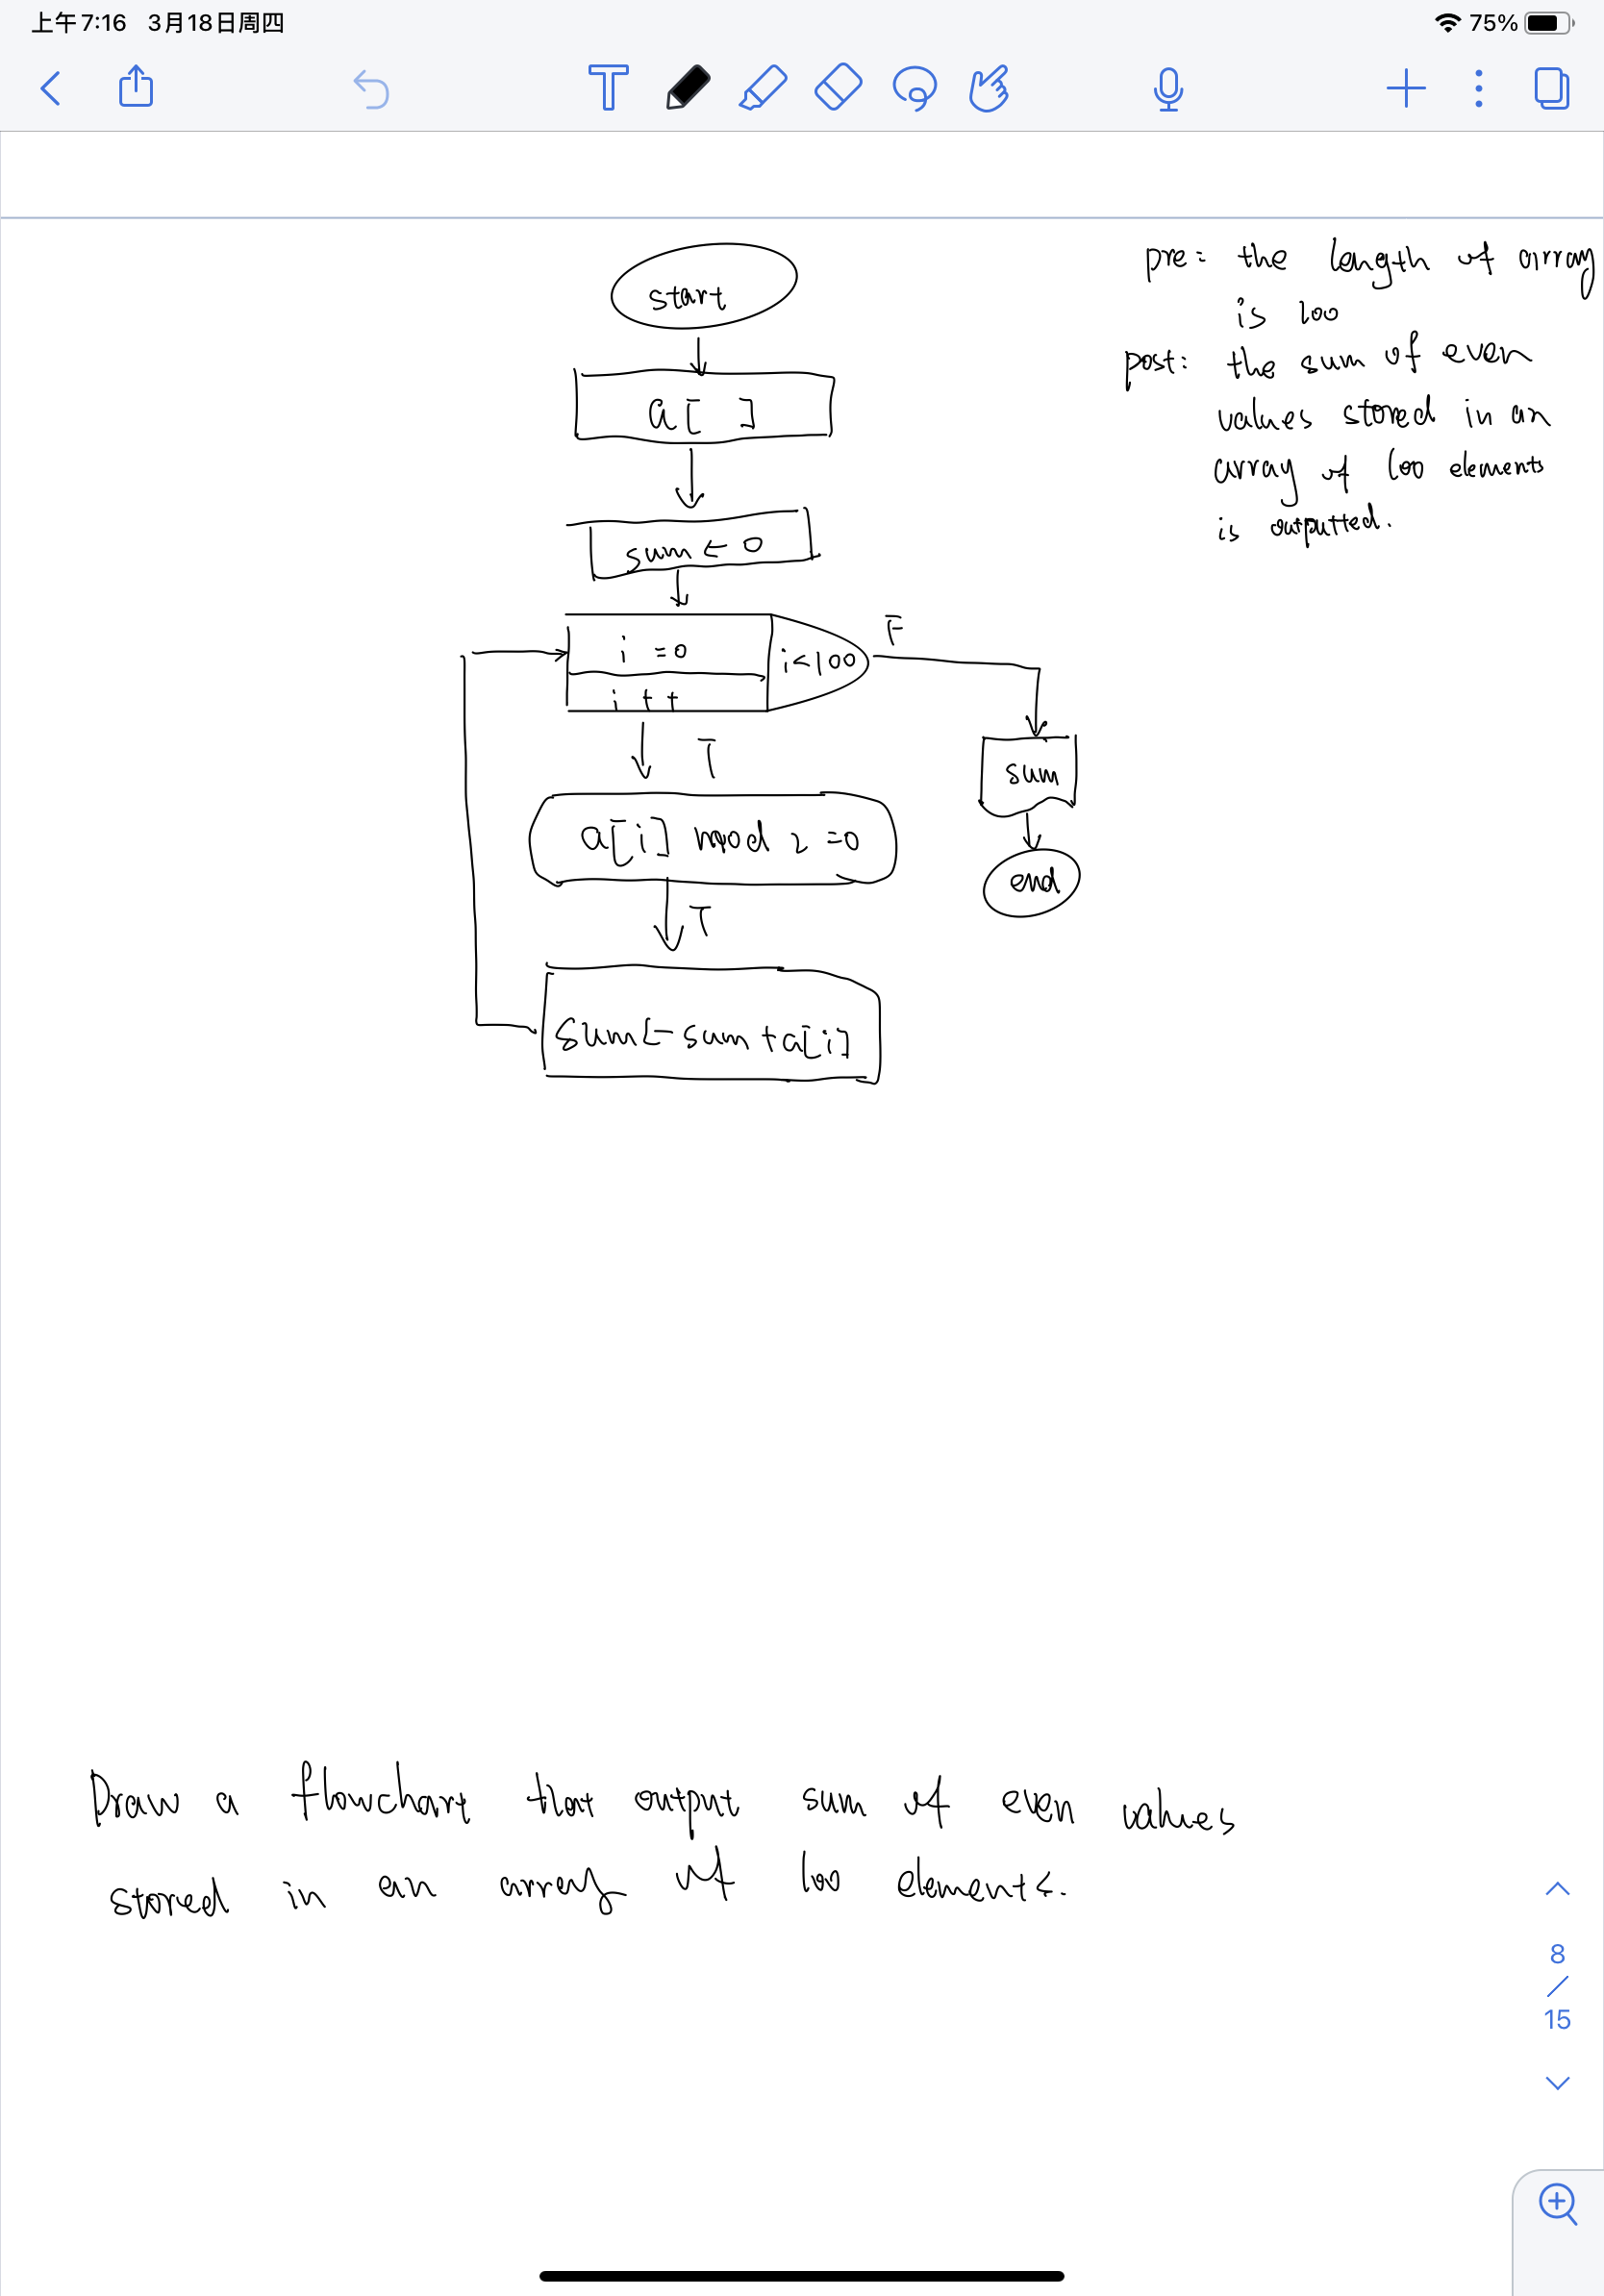 上午7:16 3月18日周四
75%
T
start
a[ ]
sum ← 0
i = 0
i<100
F
i++
T
sum
a[i] mod 2 =0
end
T
sum ← sum + a[i]
pre: the length of array
is 100
post: the sum of even
values stored in an
array of 100 elements
is outputted.
Draw a flowchart that output sum of even values
stored in an array of 100 elements.
8
/
15